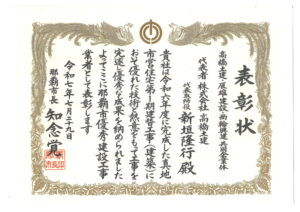 表彰状
高橋土建・尾藤建設・南都興産共同企業体
代表者 株式会社 高橋土建
代表取締役 新垣隆行 殿
貴社は令和六年度に完成した真地
市営住宅第一期建替工事（建築）に
おいて優れた技術と熱意をもって工事を
完遂し優秀な成果を納められました
よってここに那覇市優秀建設工事
業者として表彰します
令和七年七月二十九日
那覇市長 知念覚